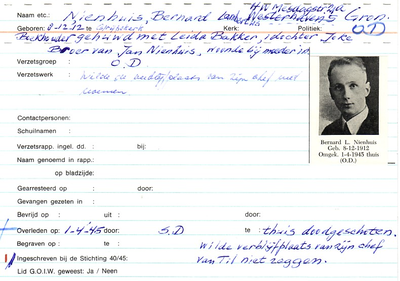 H.W. Mesdagstr
Naam etc.: Nienhuis, Bernard Gron.
Geboren: 8-12-'12 te Kerk: Politiek:
O.D
Boekhouder gehuwd met Leida Bakker, 1 dochter Joke
Broer van Jan Nienhuis, woonde bij moeder in
Verzetsgroep : O.D
Verzetswerk : Wilde de onderduikplaats van zijn chef niet
noemen.
Contactpersonen:
Schuilnamen :
Verzetsrapp. ingel. dd. : bij:
Naam genoemd in rapp.:
op bladzijde:
Gearresteerd op : door:
Gevangen gezeten in :
Bevrijd op : uit : door:
Overleden op : 1-4-'45 door: S.D te : thuis doodgeschoten.
Begraven op : te : wilde verblijfplaats van zijn chef
Ingeschreven bij de Stichting 40/45: van Til niet zeggen.
Lid G.O.I.W. geweest: Ja / Neen
Bernard L. Nienhuis
Geb. 8-12-1912
Omgek. 1-4-1945 thuis
(O.D.)